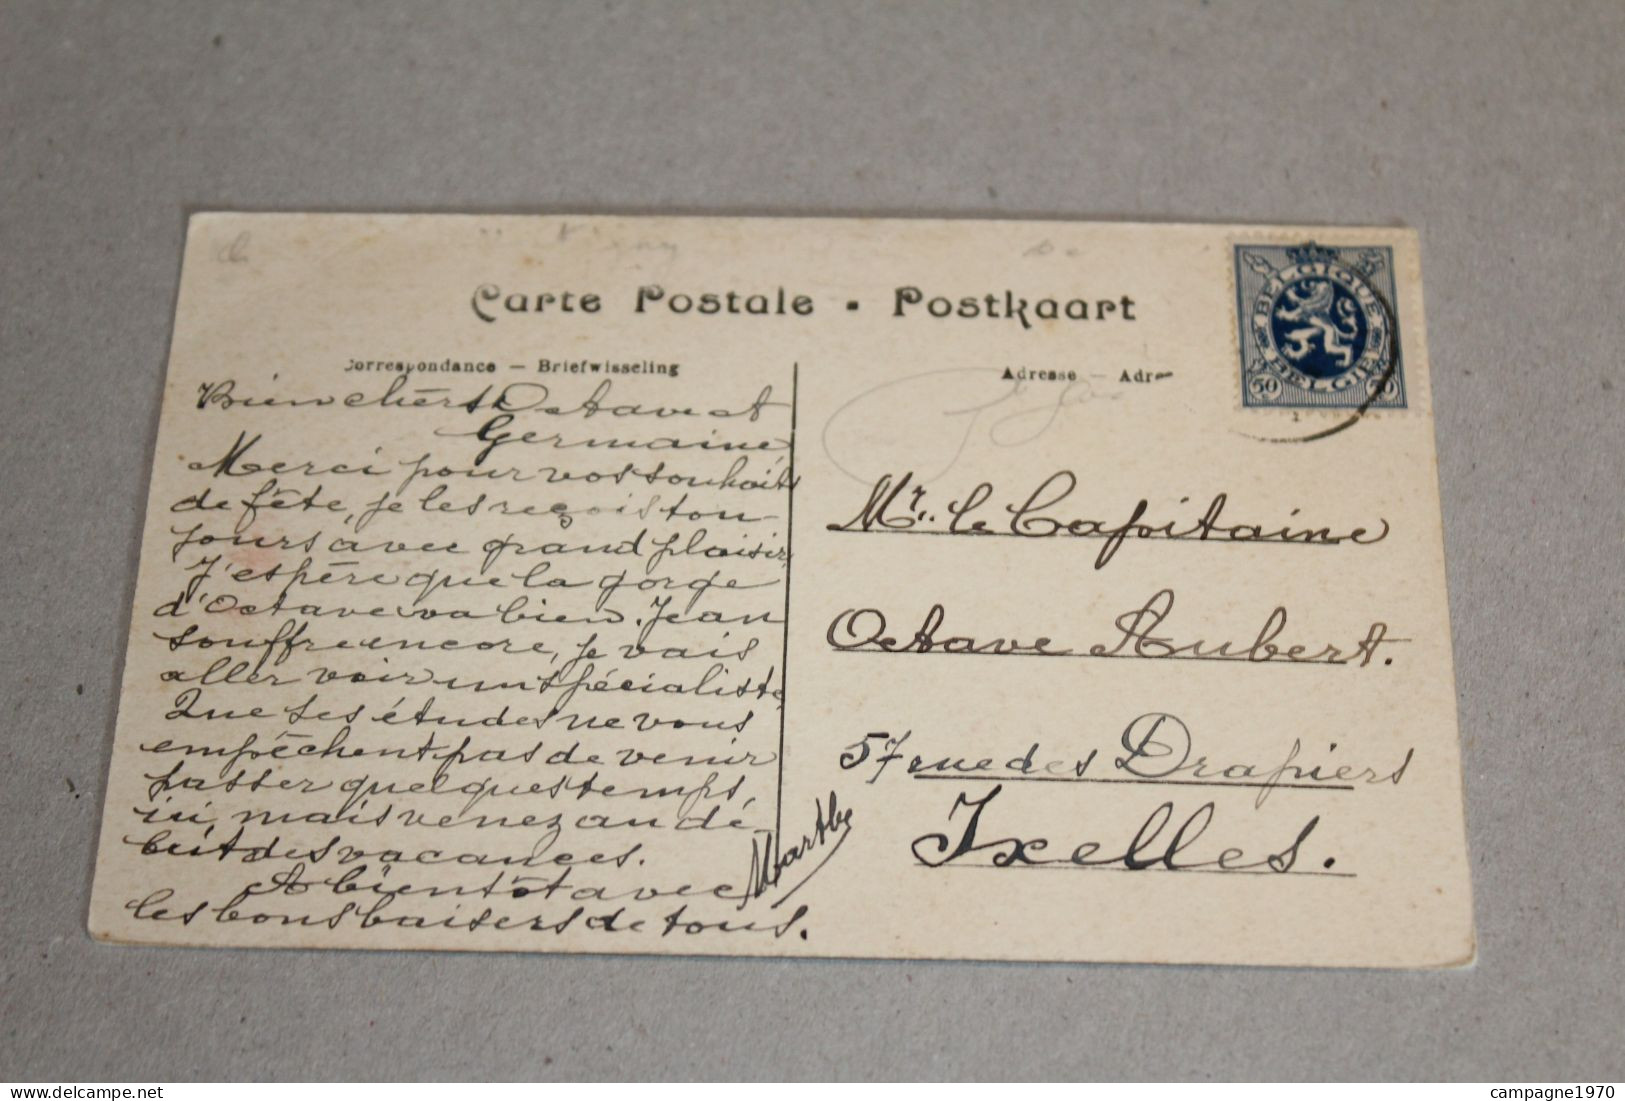 Carte Postale - Postkaart
Correspondance — Briefwisseling
Adresse — Adres
Bien chers Octave et
Germaine
Merci pour vos souhaits
de fête, je les reçois tou-
jours avec grand plaisir,
J'espère que la gorge
d'Octave va bien. Jean
souffre encore, je vais
aller voir un spécialiste,
Que ses études ne vous
empêchent pas de venir
passer quelques temps
ici, mais venez au dé-
but des vacances.
A bientôt avec
les bons baisers de tous.
Marthe
BELGIQUE
BELGIE
50 50
Mr. le Capitaine
Octave Aubert.
57 rue des Drapiers
Ixelles.
www.delcampe.net
campagne1970